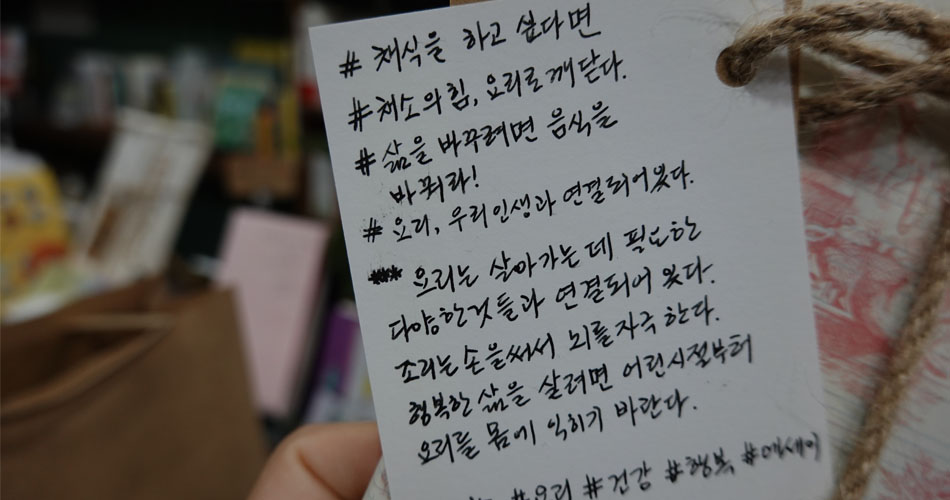 # 채식을 하고 싶다면
# 채소의 힘, 요리로 깨닫다.
# 삶을 바꾸려면 음식을
바꿔라!
# 요리, 우리 인생과 연결되어 있다.
요리는 살아가는 데 필요한
다양한것들과 연결되어 있다.
조리는 손을써서 뇌를자극한다.
행복한 삶을 살려면 어린시절부터
요리를 몸에 익히기 바란다.
#요리 #건강 #행복 #에세이